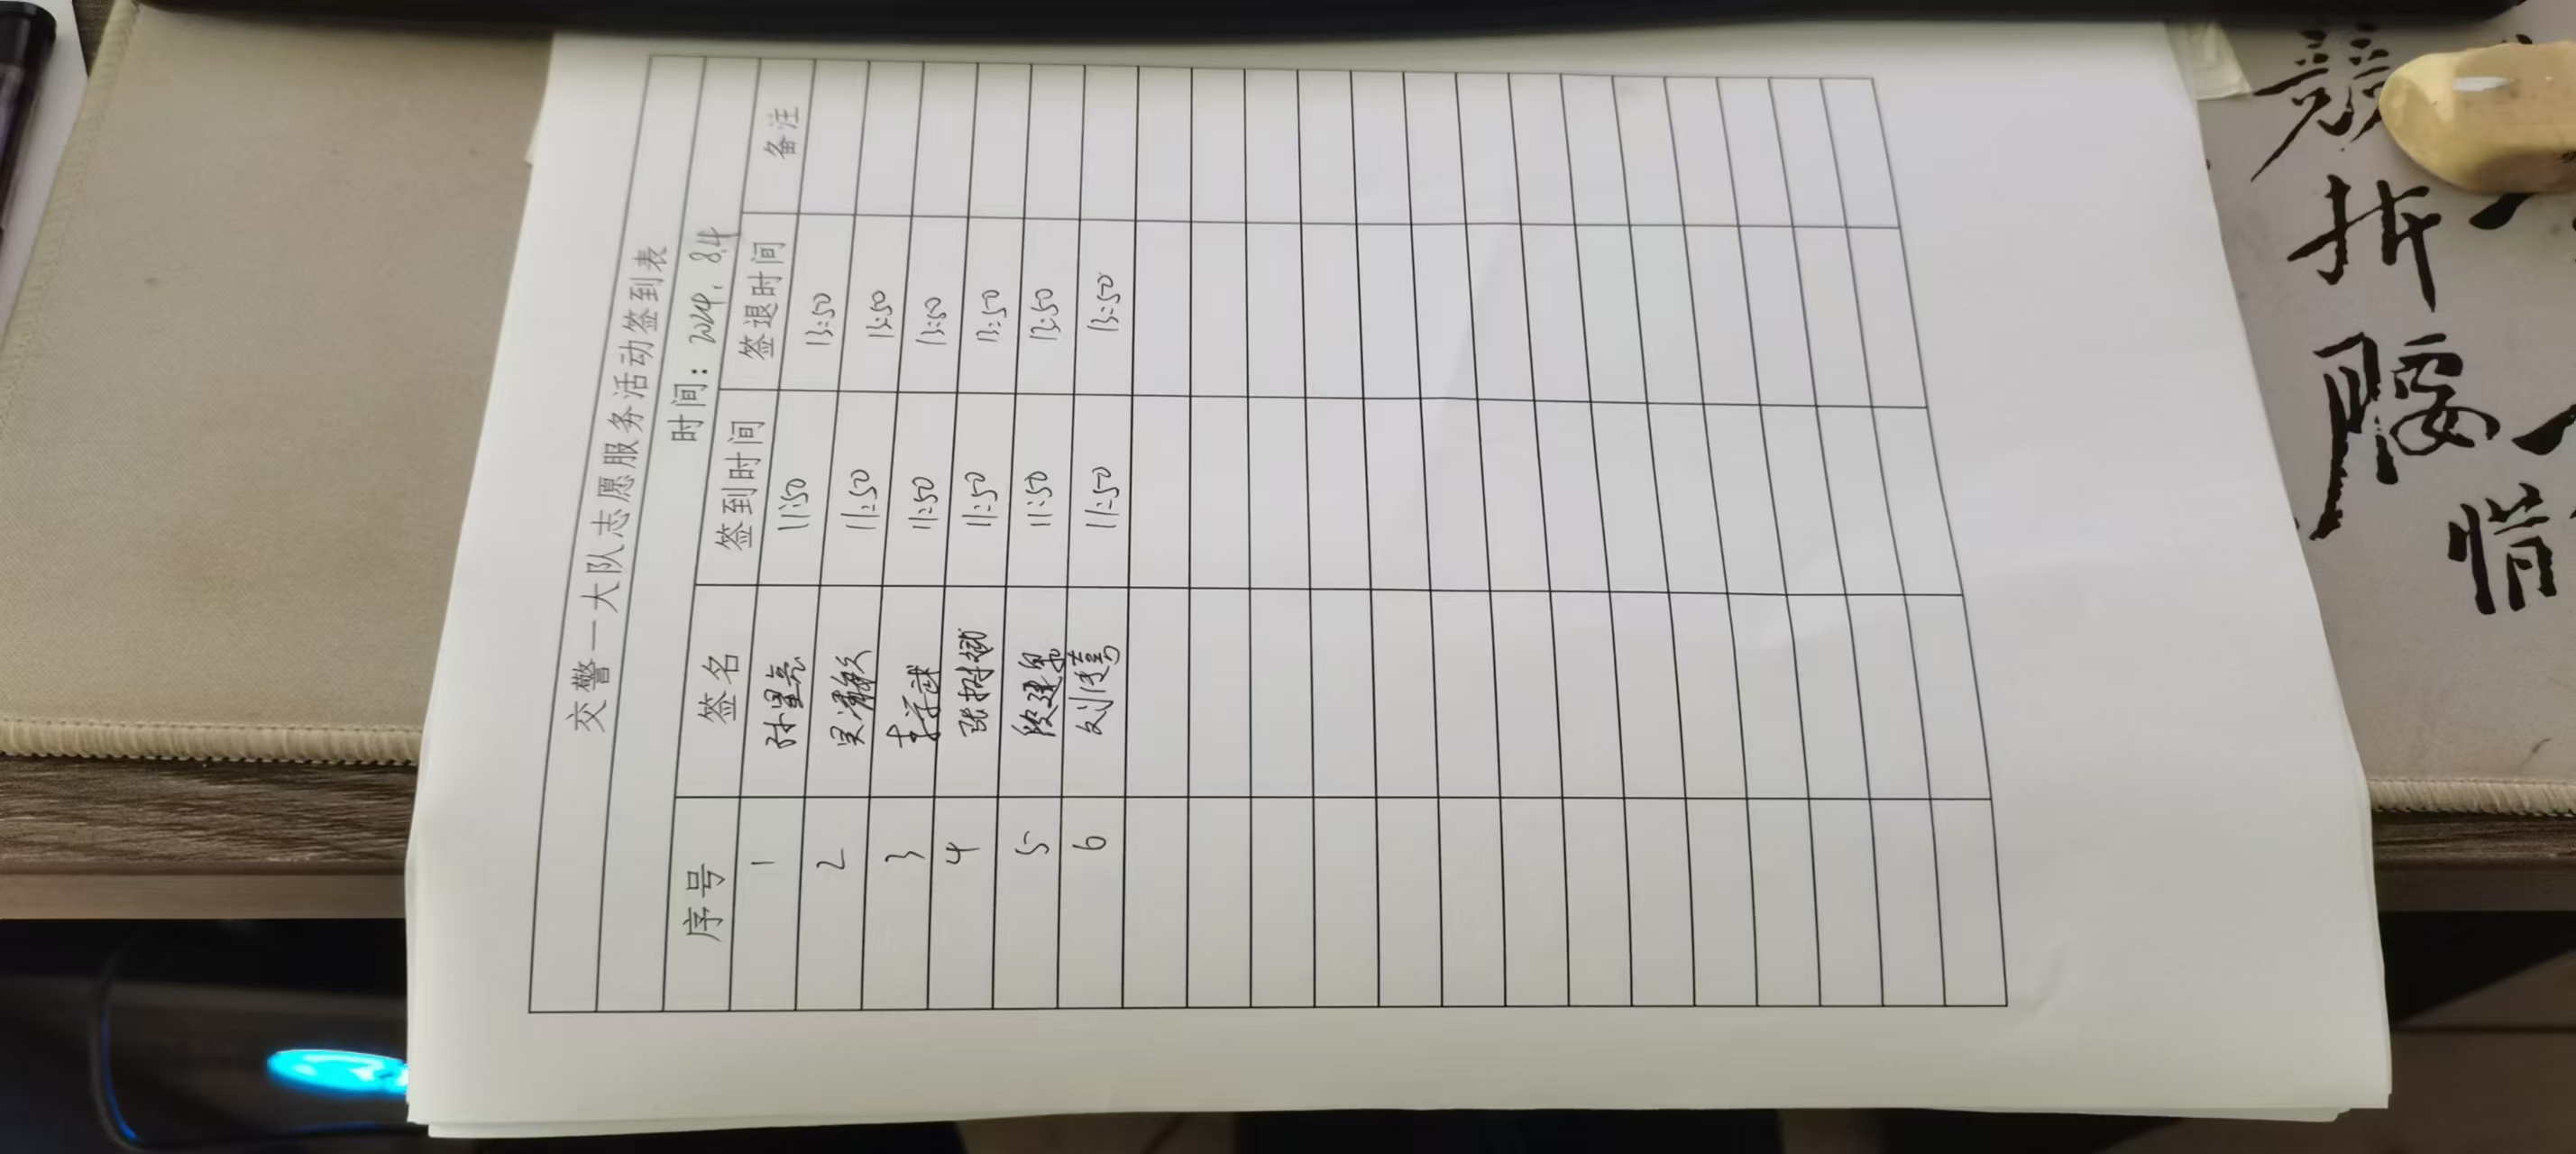 交警一大队志愿服务活动签到表
时间：2024.8.4
序号 签名 签到时间 签退时间 备注
1 孙星亮 11:50 13:50
2 吴 11:50 13:50
3 李 11:50 13:50
4 张 11:50 13:50
5 段建果 11:50 13:50
6 刘 11:50 13:50
竞
折
腰
惜